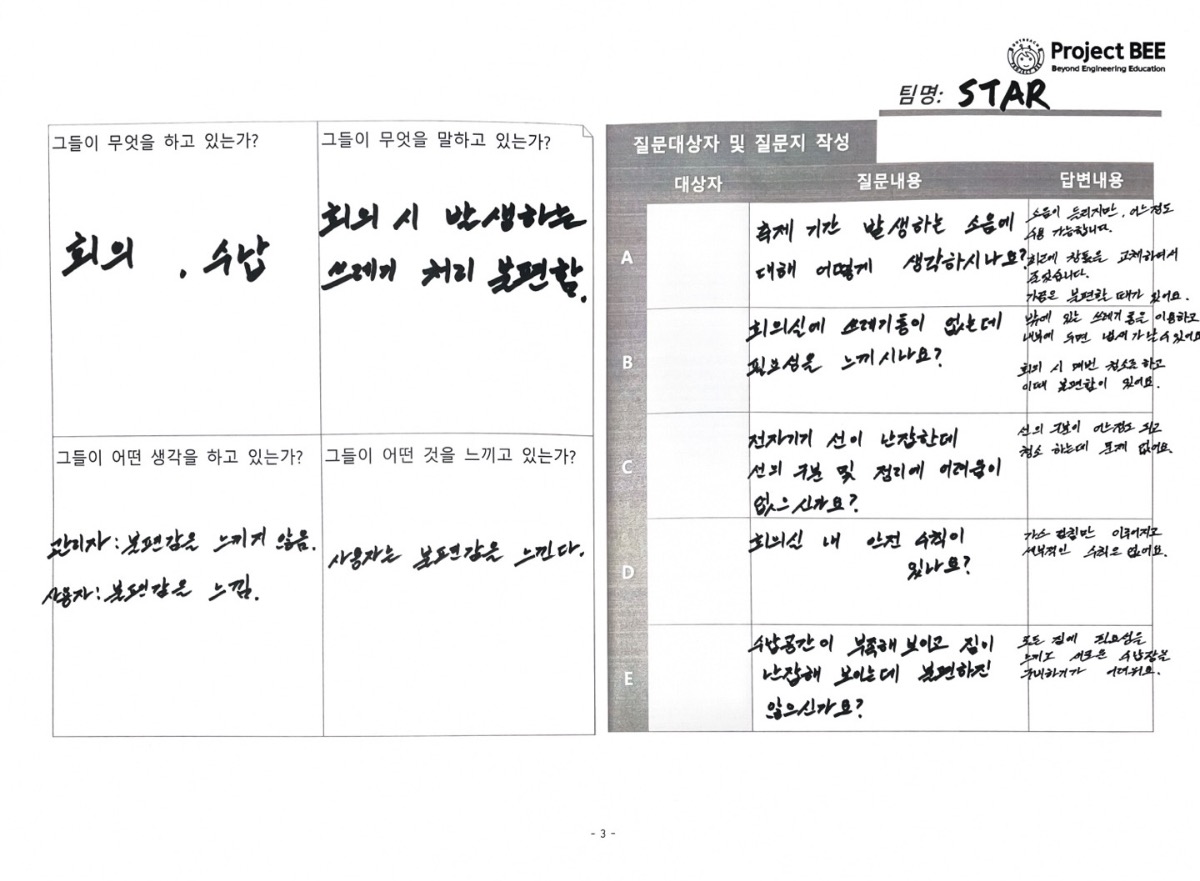 Project BEE
Beyond Engineering Education
팀명: STAR
그들이 무엇을 하고 있는가?
회의 , 수납
그들이 무엇을 말하고 있는가?
회의 시 발생하는
쓰레기 처리 불편함.
그들이 어떤 생각을 하고 있는가?
관리자: 불편감을 느끼지 않음.
사용자: 불편감을 느낌.
그들이 어떤 것을 느끼고 있는가?
사용자는 불편감을 느낀다.
질문대상자 및 질문지 작성
대상자 질문내용 답변내용
A
축제 기간 발생하는 소음에
대해 어떻게 생각하시나요?
소음이 들리지만, 어느정도
수용 가능합니다.
최근에 창틀을 교체하여서
괜찮습니다.
가끔은 불편할 때가 있어요.
B
회의실에 쓰레기통이 없는데
필요성을 느끼시나요?
밖에 있는 쓰레기통을 이용하고
내부에 두면 냄새가 날 수 있어요
회의 시 매번 청소를 하고
이때 불편함이 있어요.
C
전자기기 선이 난잡한데
선의 구분 및 정리에 어려움이
없으신가요?
선의 구분이 어느정도 되고
청소 하는데 문제 없어요.
D
회의실 내 안전 수칙이
있나요?
가스 점검만 이루어지고
세부적인 수칙은 없어요.
E
수납공간이 부족해 보이고 짐이
난잡해 보이는데 불편하진
않으신가요?
모든 짐에 필요성을
느끼고 새로운 수납장을
구비하기가 어려워요.
- 3 -